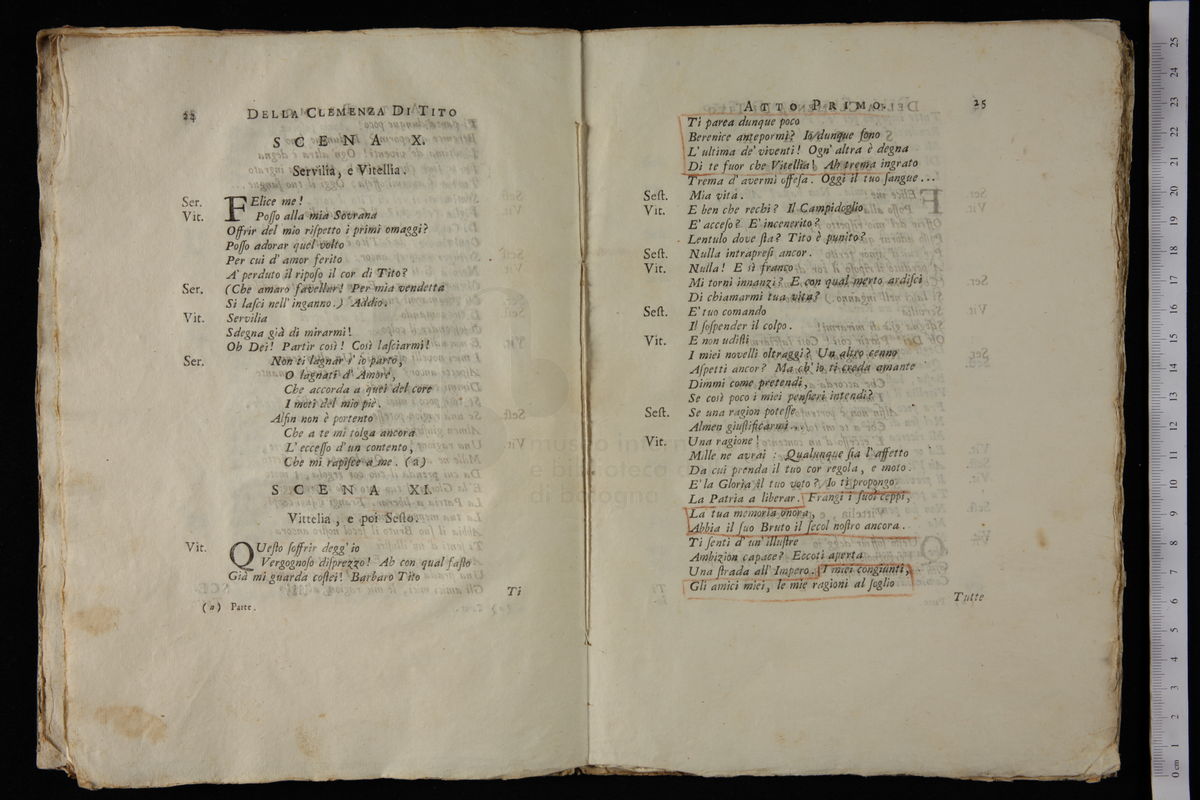 24 DELLA CLEMENZA DI TITO
SCENA X.
Servilia, e Vitellia.
Ser. FElice me!
Vit. Posso alla mia Sovrana
Offrir del mio rispetto i primi omaggi?
Posso adorar quel volto
Per cui d' amor ferito
A' perduto il riposo il cor di Tito?
Ser. (Che amaro favellar! Per mia vendetta
Si lasci nell' inganno.) Addio.
Vit. Servilia
Sdegna già di mirarmi!
Oh Dei! Partir così! Così lasciarmi!
Ser. Non ti lagnar s' io parto,
O lagnati d' Amore,
Che accorda a quei del core
I moti del mio piè.
Alfin non è portento
Che a te mi tolga ancora
L' eccesso d' un contento,
Che mi rapisce a me. (a)
SCENA XI.
Vittelia, e poi Sesto.
Vit. QUesto soffrir degg' io
Vergognoso disprezzo! Ah con qual fasto
Già mi guarda costei! Barbaro Tito
Ti
(a) Parte.
ATTO PRIMO. 25
Ti parea dunque poco
Berenice antepormi? Io dunque sono
L' ultima de' viventi! Ogn' altra è degna
Di te fuor che Vitellia! Ah trema ingrato
Trema d' avermi offesa. Oggi il tuo sangue...
Sest. Mia vita.
Vit. E ben che rechi? Il Campidoglio
E' acceso? E' incenerito?
Lentulo dove sta? Tito è punito?
Sest. Nulla intrapresi ancor.
Vit. Nulla! E sì franco
Mi torni innanzi? E con qual merto ardisci
Di chiamarmi tua vita?
Sest. E' tuo comando
Il sospender il colpo.
Vit. E non udisti
I miei novelli oltraggi? Un altro cenno
Aspetti ancor? Ma ch' io ti creda amante
Dimmi come pretendi,
Se così poco i miei pensieri intendi?
Sest. Se una ragion potesse
Almen giustificarmi...
Vit. Una ragione!
Mille ne avrai: Qualunque sia l' affetto
Da cui prenda il tuo cor regola, e moto.
E' la Gloria il tuo voto? Io ti propongo
La Patria a liberar. Frangi i suoi ceppi,
La tua memoria onora,
Abbia il suo Bruto il secol nostro ancora.
Ti senti d' un' illustre
Ambizion capace? Eccoti aperta
Una strada all' Impero. I miei congiunti,
Gli amici miei, le mie ragioni al soglio
Tutte